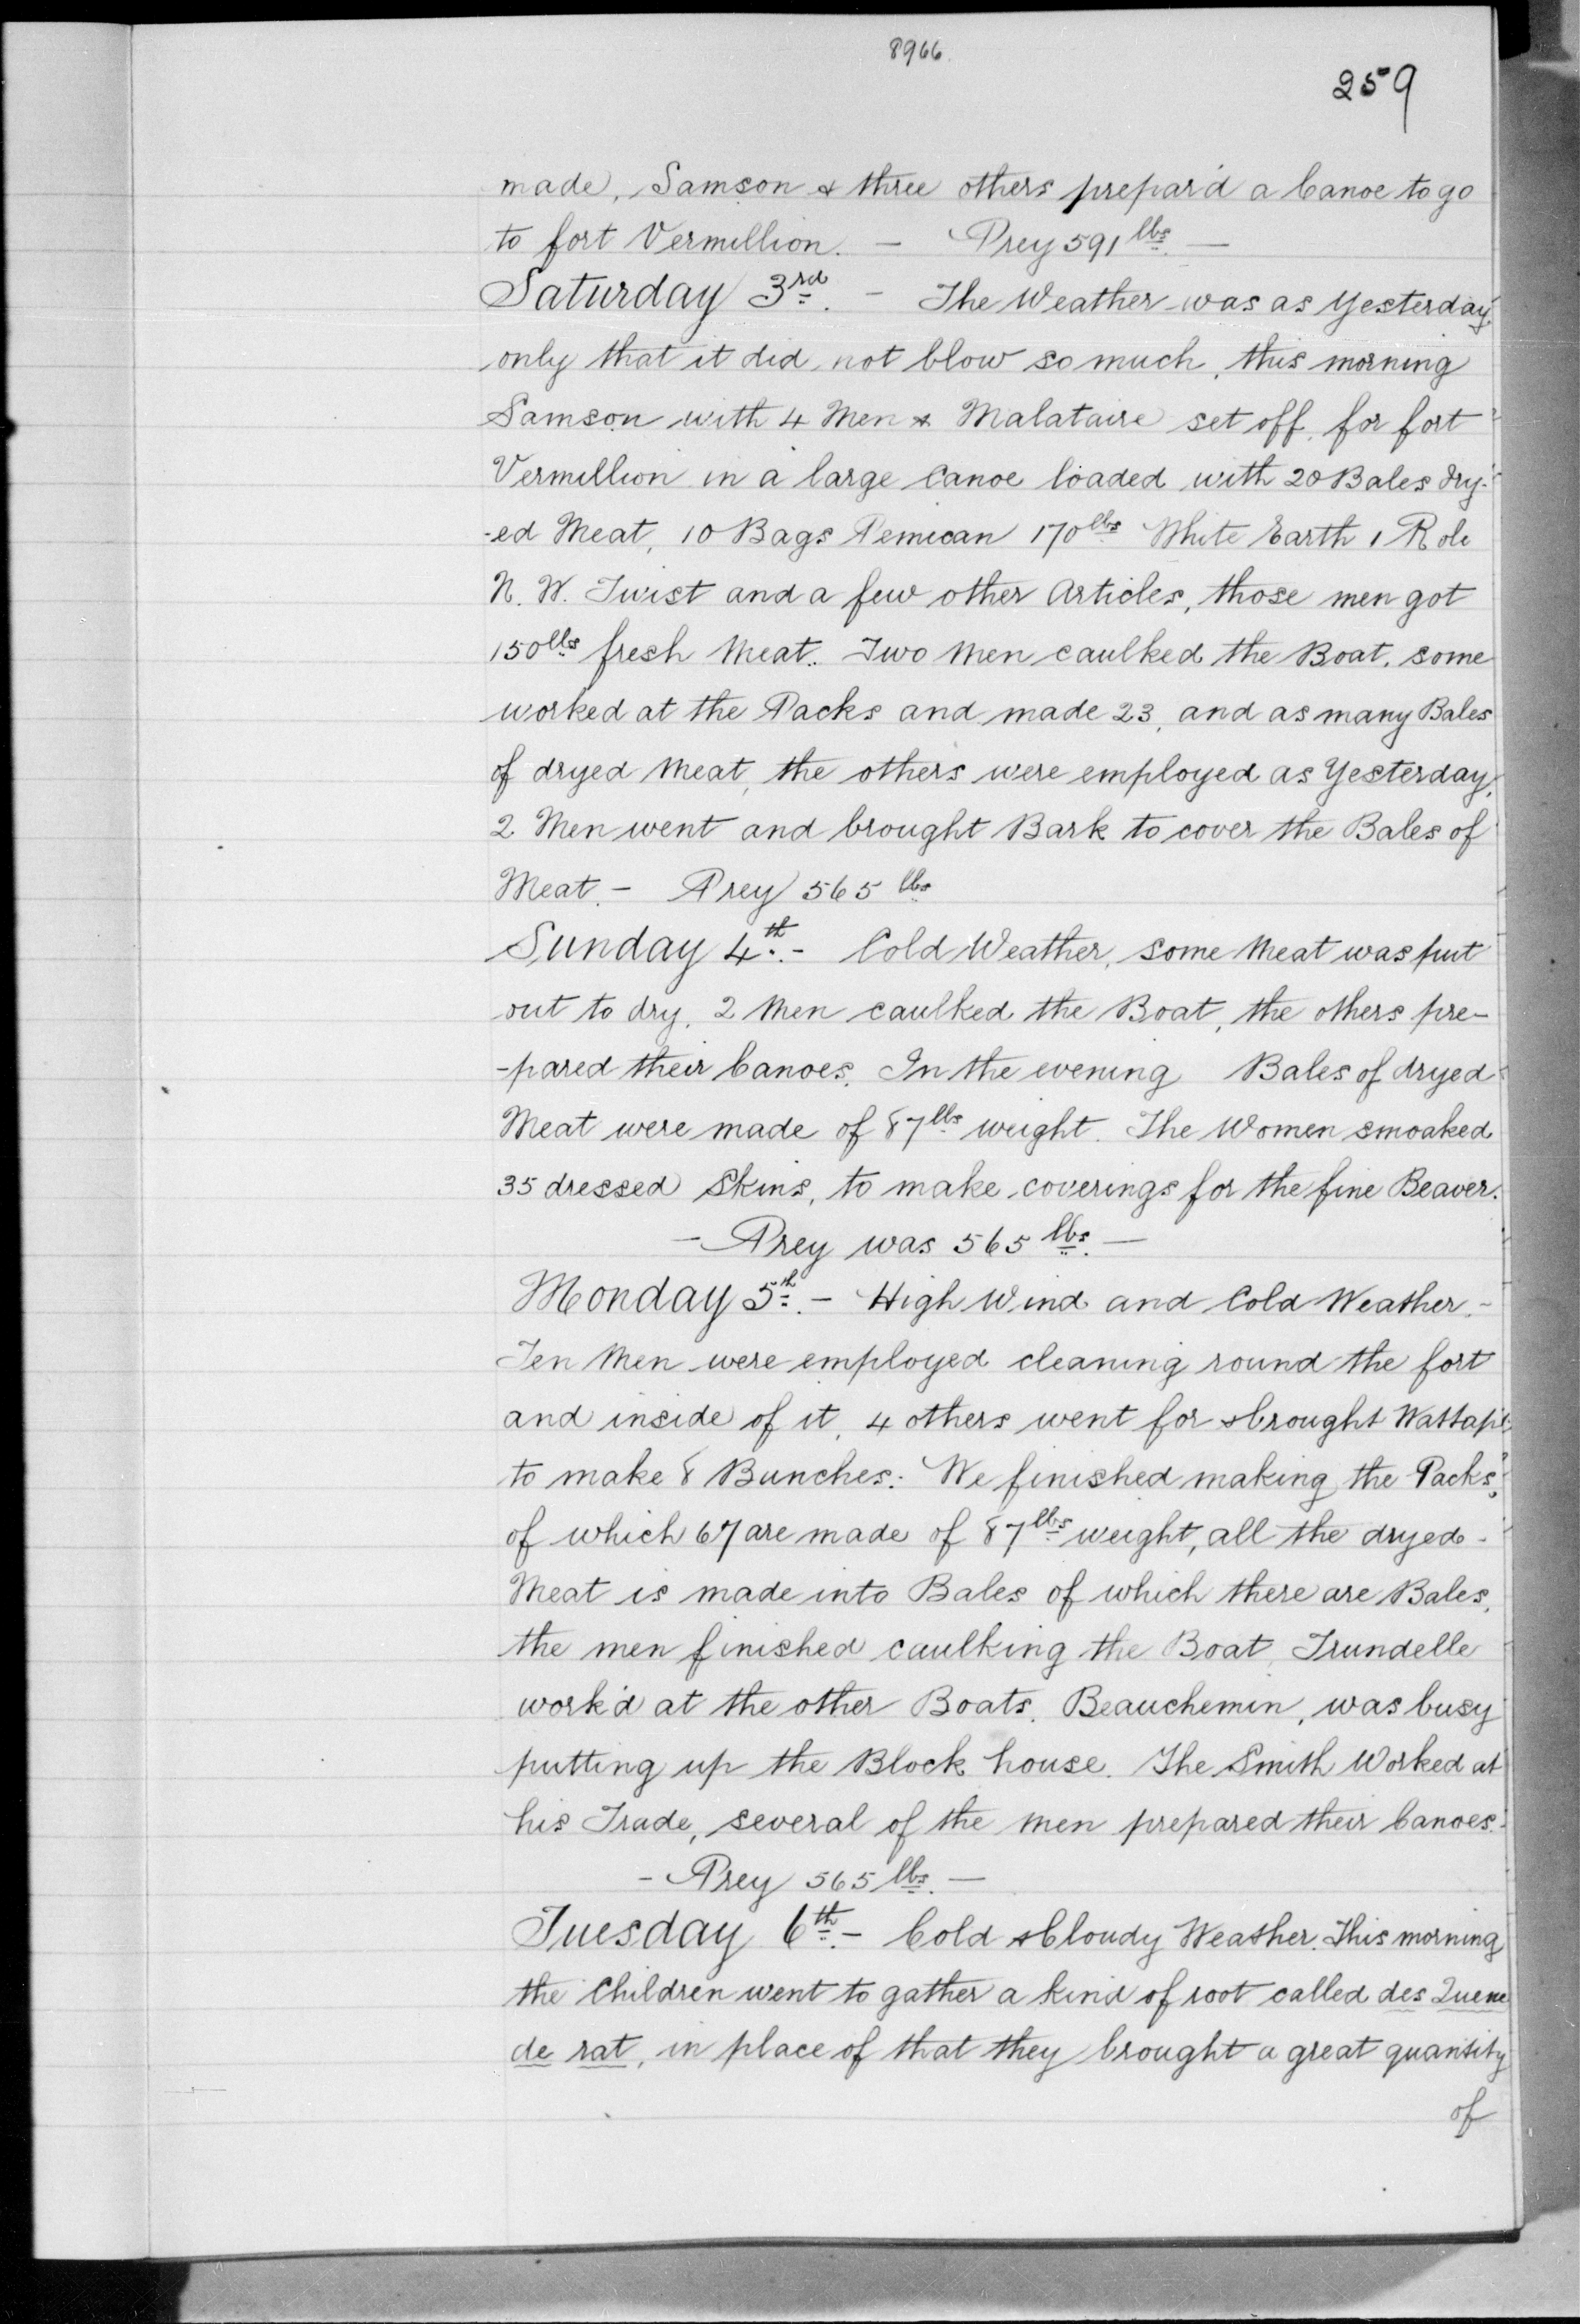 8966.
259
made, Samson & three others prepar'd a Canoe to go
to fort Vermillion. — Prey 591 lbs. —
Saturday 3rd. — The Weather was as Yesterday,
only that it did not blow so much, this morning
Samson with 4 Men & Malataire set off for fort
Vermillion in a large Canoe loaded with 20 Bales dry-
-ed Meat, 10 Bags Pemican 170 lbs White Earth 1 Role
N. W. Twist and a few other Articles, those men got
150 lbs fresh Meat. Two Men caulked the Boat, some
worked at the Packs and made 23, and as many Bales
of dryed Meat, the others were employed as Yesterday,
2 Men went and brought Bark to cover the Bales of
Meat. — Prey 565 lbs
Sunday 4th. — Cold Weather, some Meat was put
out to dry, 2 Men caulked the Boat, the others pre-
-pared their Canoes. In the evening Bales of dryed
Meat were made of 87 lbs weight. The Women smoaked
35 dressed Skins, to make coverings for the fine Beaver.
— Prey was 565 lbs. —
Monday 5th. — High Wind and Cold Weather. —
Ten Men were employed cleaning round the fort
and inside of it, 4 others went for & brought Wattapé
to make 8 Bunches. We finished making the Packs,
of which 67 are made of 87 lbs weight, all the dryed
Meat is made into Bales of which there are Bales,
the men finished caulking the Boat, Trundelle
work'd at the other Boats. Beauchemin, was busy
putting up the Block house. The Smith Worked at
his Trade, several of the men prepared their Canoes.
— Prey 565 lbs. —
Tuesday 6th. — Cold & Cloudy Weather. This morning
the Children went to gather a kind of root called des Queue
de rat, in place of that they brought a great quantity
of